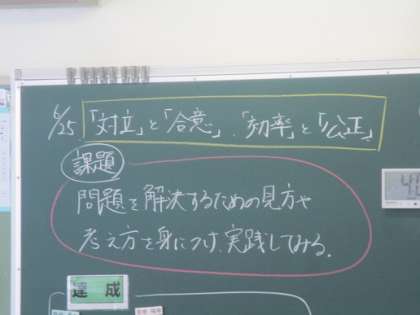 6/25 「対立」と「合意」、「効率」と「公正」
課題
問題を解決するための見方や
考え方を身につけ、実践してみる。
達成